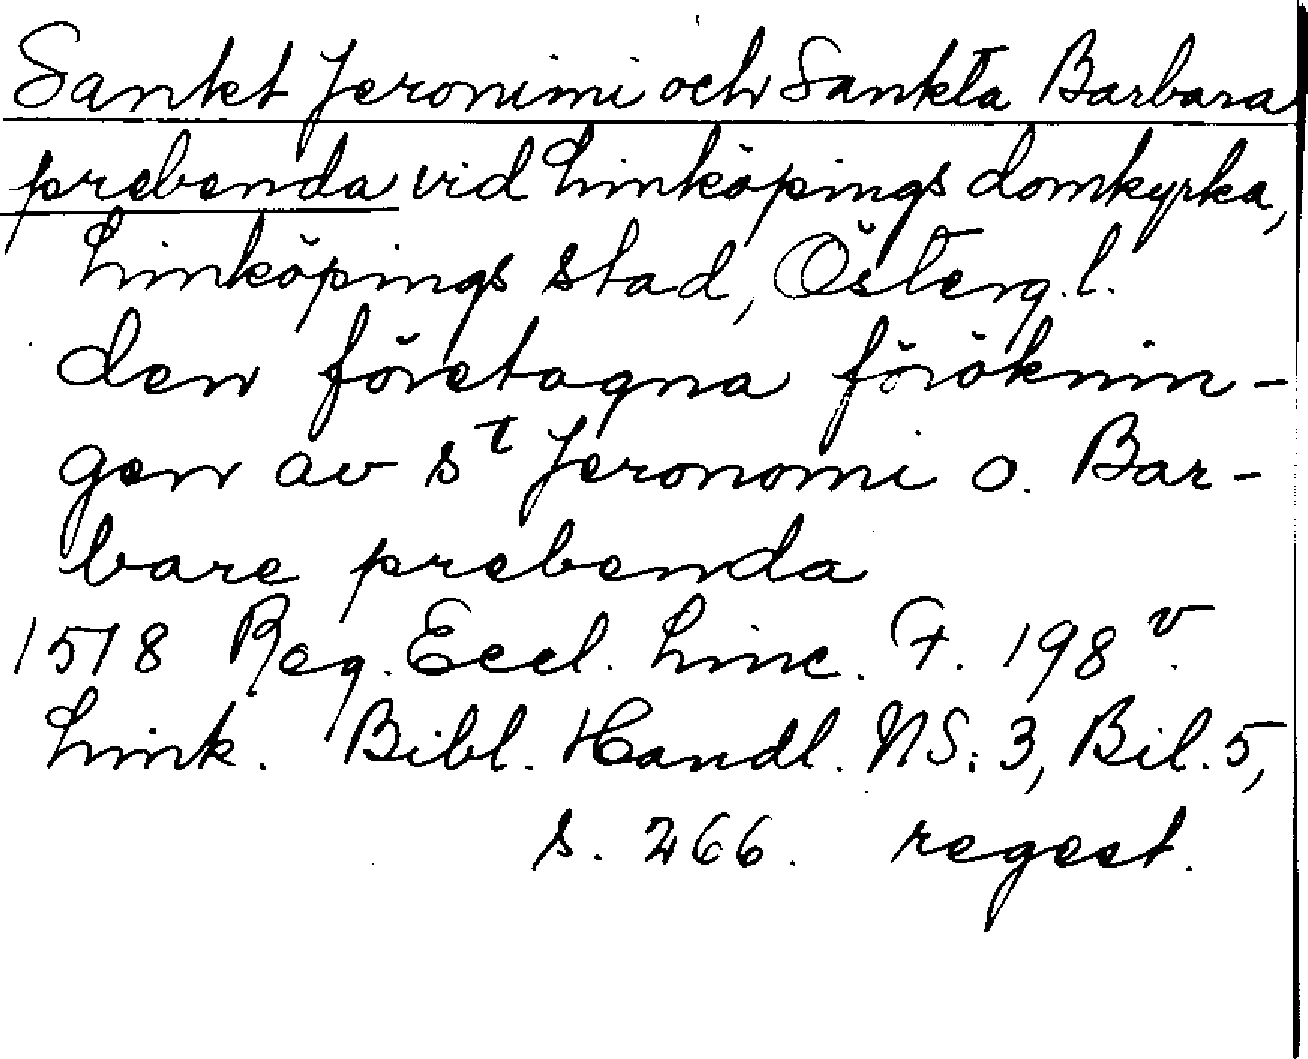 Sankt Jeronimi och Sankta Barbara
prebenda vid Linköpings domkyrka,
Linköpings stad, Österg.l.
den företagna föröknin-
gen av st Jeronomi o. Bar-
bare prebenda
1518 Reg. Eccl. Linc. F. 198 v.
Link. Bibl. Handl. NS: 3, Bil. 5,
s. 266. regest.